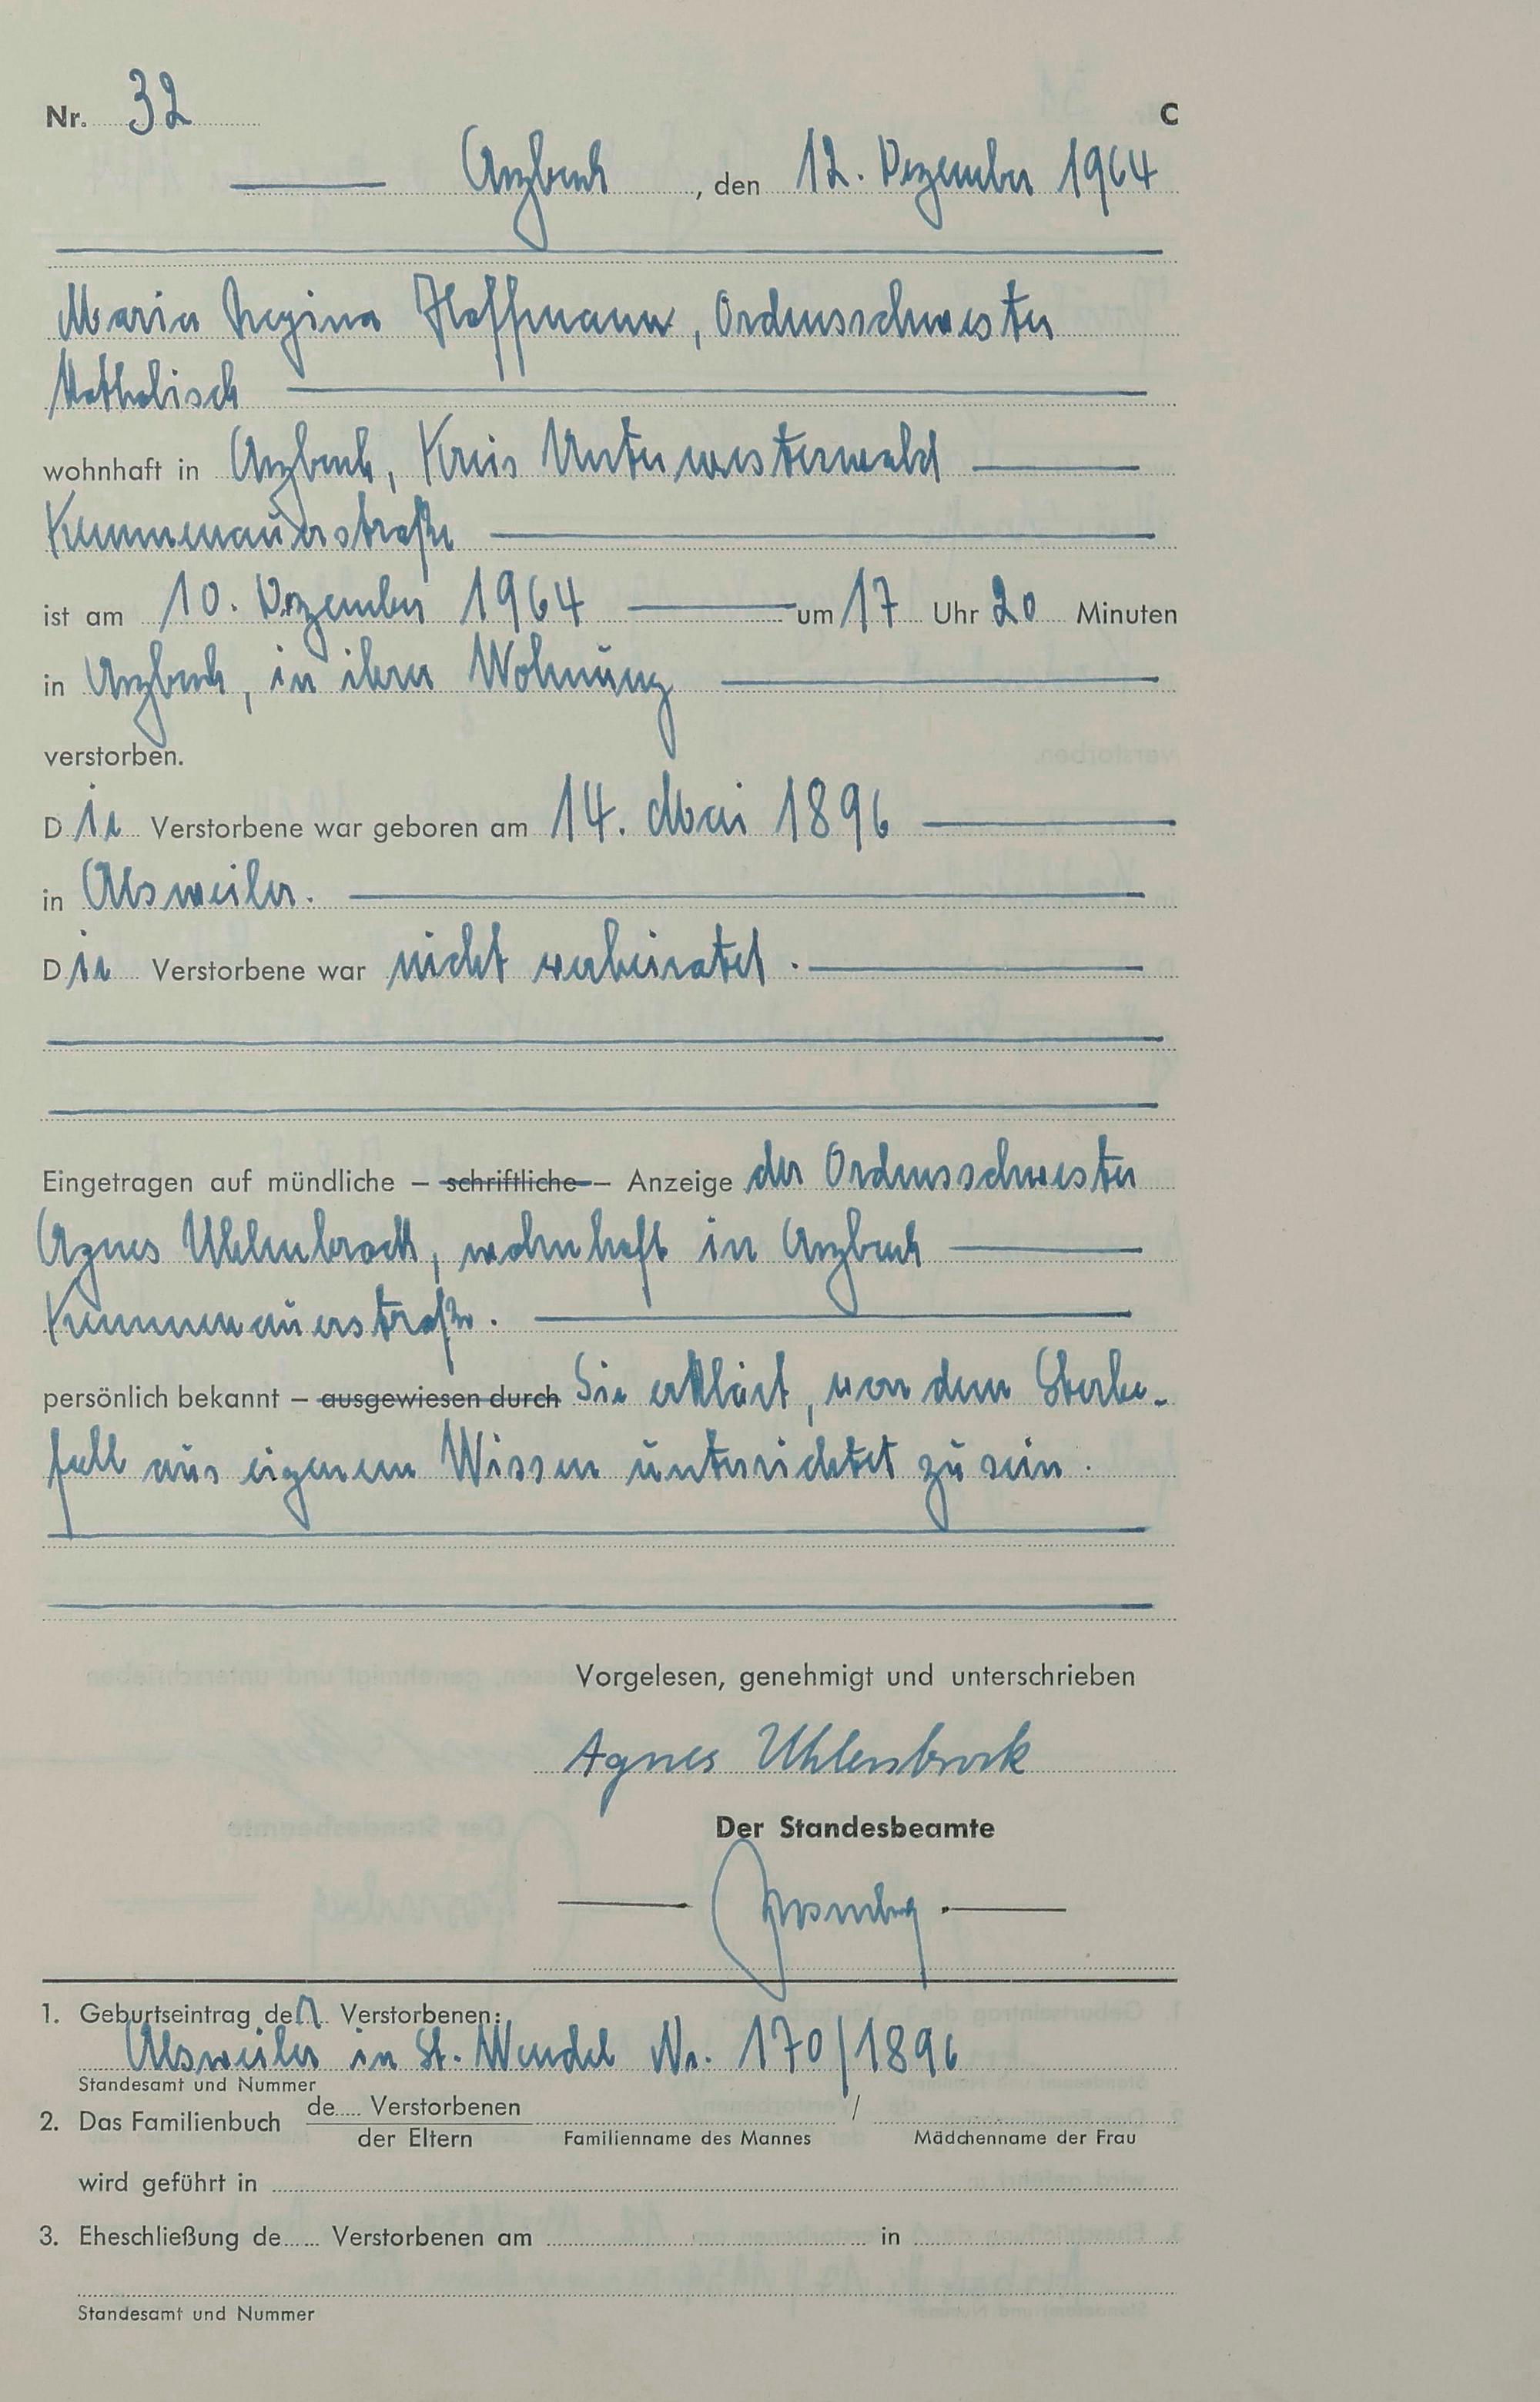 Nr. 32 C
Arzbach, den 12. Dezember 1964
Maria Regina Hoffmann, Ordensschwester
Katholisch
wohnhaft in Arzbach, Kreis Unterwesterwald
Kemmenauerstraße
ist am 10. Dezember 1964 um 17 Uhr 20 Minuten
in Arzbach, in ihrer Wohnung
verstorben.
Die Verstorbene war geboren am 14. Mai 1896
in Alsweiler.
Die Verstorbene war nicht verheiratet.
Eingetragen auf mündliche – schriftliche – Anzeige der Ordensschwester
Agnes Uhlenbrock, wohnhaft in Arzbach
Kemmenauerstraße.
persönlich bekannt – ausgewiesen durch Sie erklärt, von dem Sterbe-
fall aus eigenem Wissen unterrichtet zu sein.
Vorgelesen, genehmigt und unterschrieben
Agnes Uhlenbrock
Der Standesbeamte
1. Geburtseintrag der Verstorbenen:
Alsweiler in St. Wendel Nr. 170/1896
Standesamt und Nummer
2. Das Familienbuch de..... Verstorbenen /
der Eltern Familienname des Mannes Mädchenname der Frau
wird geführt in
3. Eheschließung de...... Verstorbenen am in
Standesamt und Nummer